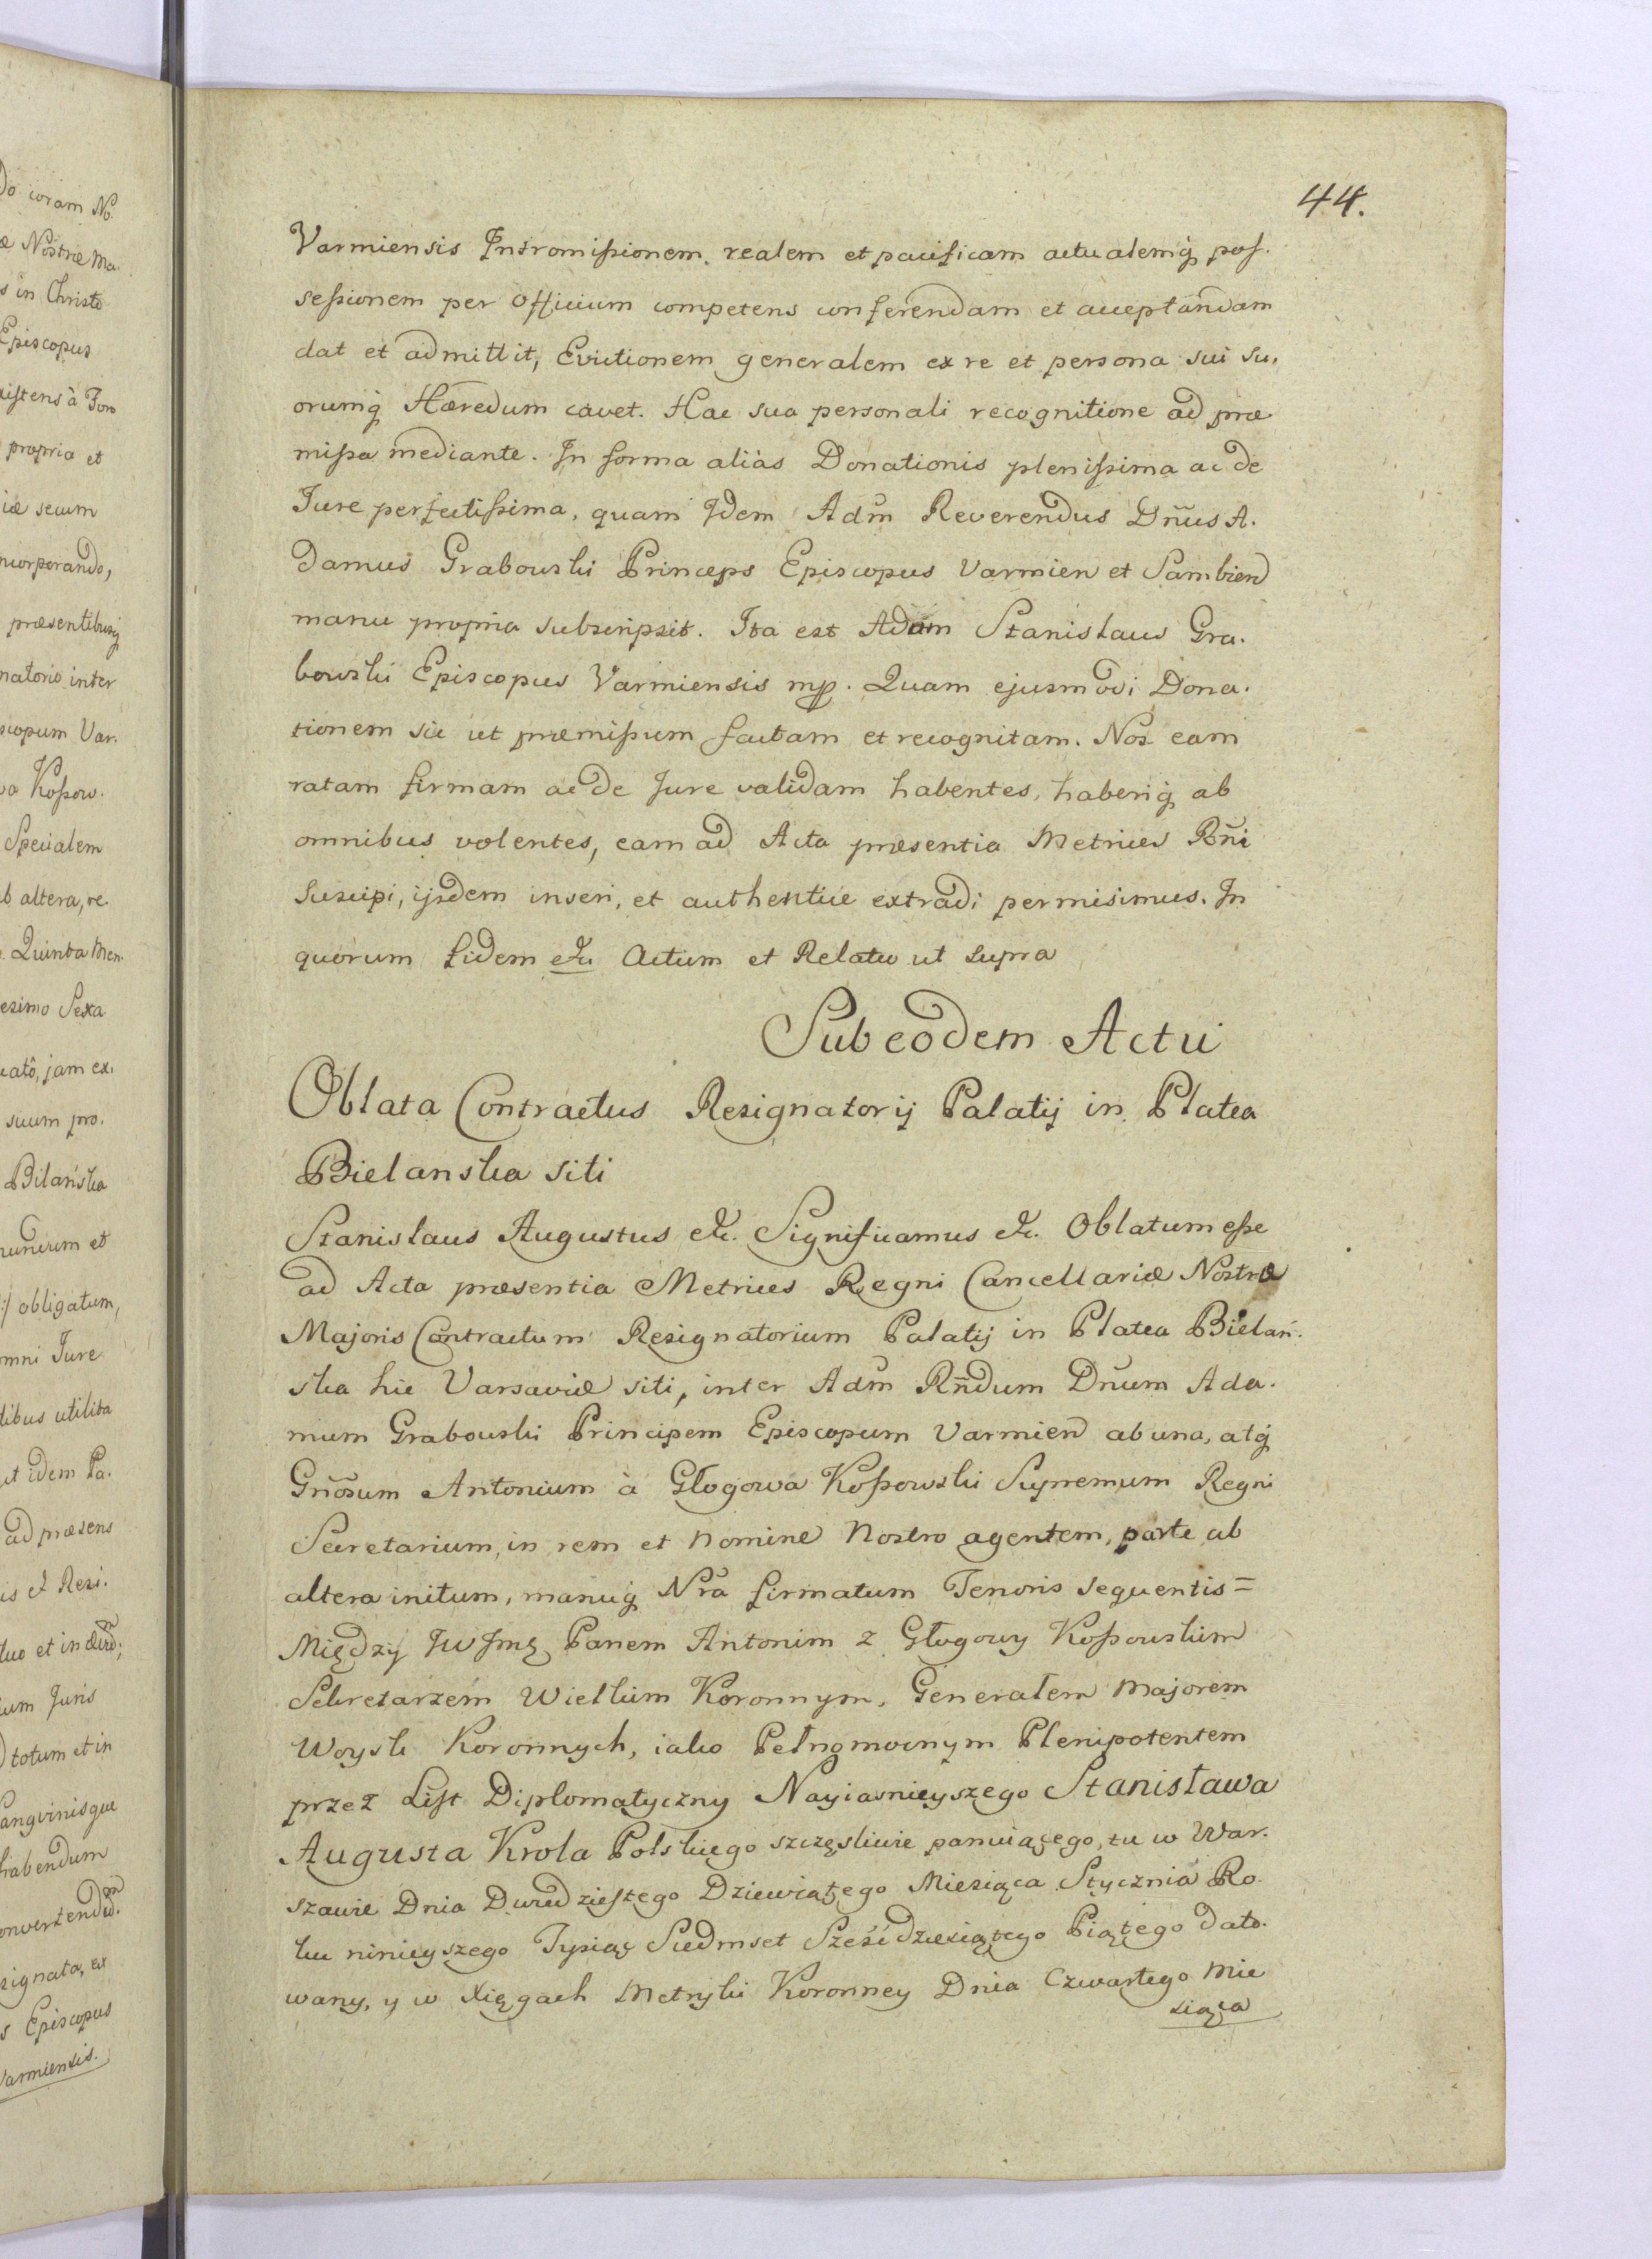 44.
Varmiensis Intromißionem, realem et pacificam actualemq́ pos.
seßionem per Officium competens conferendam et acceptandam
dat et admittit, Evictionem generalem ex re et persona sui su.
orumq́ Hæredum cavet. Hac sua personali recognitione ad præ
mißa mediante. In forma aliàs Donationis plenißima ac de
Jure perfectißima, quam Idem Adm̃ Reverendus Dñus A.
damus Grabowski Princeps Episcopus Varmien et Sambien
manu propria subscripsit. Ita est Adam Stanislaus Gra.
bowski Episcopus Varmiensis mp. Quam ejusmodi Dona.
tionem sic ut præmißum factam et recognitam. Nos eam
ratam firmam ac de Jure validam habentes, haberiq́ ab
omnibus volentes, eam ad Acta præsentia Metrices Rñi
suscipi, ijsdem inseri, et authentice extradi permisimus. In
quorum fidem etc. Actum et Relatio ut supra
Sub eodem Actu
Oblata Contractus Resignatorij Palatij in Platea
Bielanska siti
Stanislaus Augustus etc. Significamus etc. Oblatum eße
ad Acta præsentia Metrices Regni Cancellariæ Nostræ
Majoris Contractum Resignatorium Palatij in Platea Bielań.
ska hic Varsaviæ siti, inter Adm̃ Rñdum Dñum Ada.
mum Grabowski Principem Episcopum Varmien ab una, atq́
Gñosum Antonium à Głogowa Koßowski Supremum Regni
Secretarium, in rem et Nomine Nostro agentem, parte ab
altera initum, manuq́ Nrã firmatum Tenoris sequentis =
Między JW Jmę Panem Antonim z Głogowy Koßowskim
Sekretarzem Wielkim Koronnym, Generałem Majorem
Woysk Koronnych, iako Pełnomocnym Plenipotentem
przez List Diplomatyczny Nayiasnieyszego Stanisława
Augusta Krola Polskiego szczęsliwie panuiącego, tu w War.
szawie Dnia Dwudziestego Dziewiątego Miesiąca Stycznia Ro.
ku ninieyszego Tysiąc Siedmset Sześćdziesiątego Piątego dato.
wany, y w Xięgach Metryki Koronney Dnia Czwartego Mie
siąca